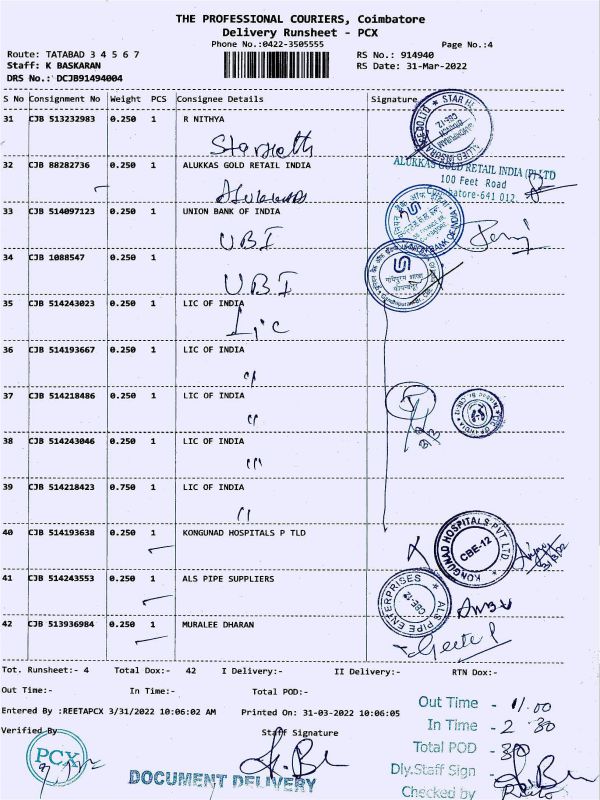 THE PROFESSIONAL COURIERS, Coimbatore
Delivery Runsheet - PCX
Phone No.:0422-3505555
Page No.:4
Route: TATABAD 3 4 5 6 7
RS No.: 914940
Staff: K BASKARAN
RS Date: 31-Mar-2022
DRS No.: DCJB91494004
S No Consignment No Weight PCS Consignee Details Signature
31 CJB 513232983 0.250 1 R NITHYA
32 CJB 88282736 0.250 1 ALUKKAS GOLD RETAIL INDIA
ALUKKAS GOLD RETAIL INDIA (P) LTD
100 Feet Road
33 CJB 514097123 0.250 1 UNION BANK OF INDIA
UBI
34 CJB 1088547 0.250 1
UBI
35 CJB 514243023 0.250 1 LIC OF INDIA
Lic
36 CJB 514193667 0.250 1 LIC OF INDIA
37 CJB 514218486 0.250 1 LIC OF INDIA
38 CJB 514243046 0.250 1 LIC OF INDIA
39 CJB 514218423 0.750 1 LIC OF INDIA
40 CJB 514193638 0.250 1 KONGUNAD HOSPITALS P TLD
KONGUNAD HOSPITALS PVT LTD
CBE-12
41 CJB 514243553 0.250 1 ALS PIPE SUPPLIERS
ALS PIPE ENTERPRISES
CBE-12
42 CJB 513936984 0.250 1 MURALEE DHARAN
Tot. Runsheet:- 4 Total Dox:- 42 I Delivery:- II Delivery:- RTN Dox:-
Out Time:- In Time:- Total POD:-
Entered By :REETAPCX 3/31/2022 10:06:02 AM Printed On: 31-03-2022 10:06:05
Verified By Staff Signature
PCX
DOCUMENT DELIVERY
Out Time - 11.00
In Time - 2 30
Total POD - 30
Dly.Staff Sign -
Checked by